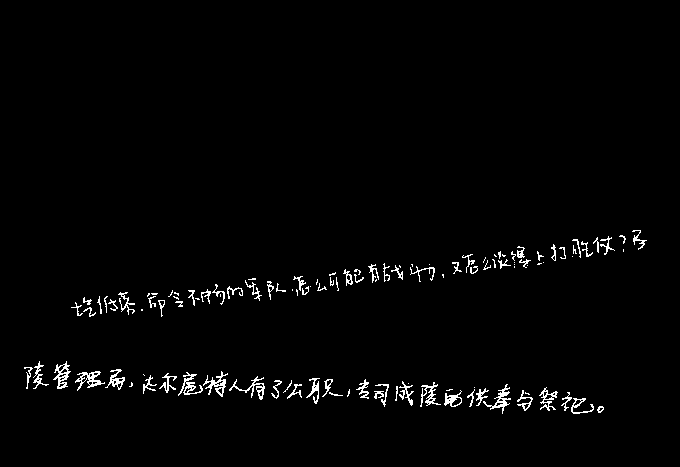 低落,命令不畅的军队,怎么可能有战斗力,又怎么谈得上打胜仗?
陵管理局,达尔扈特人有了公职,专司成陵的供奉与祭祀。